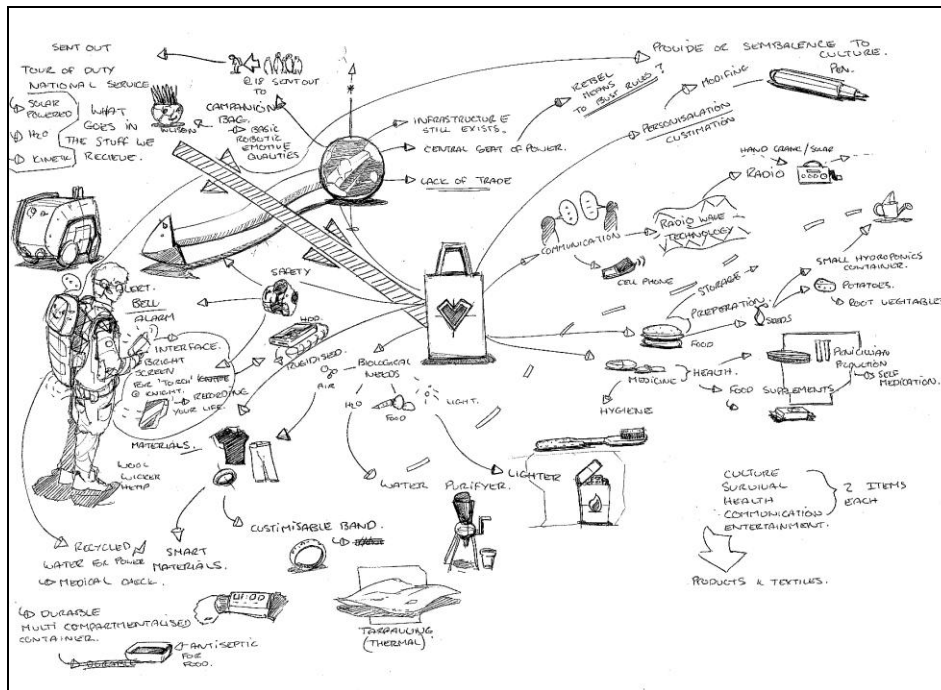 SENT OUT
TOUR OF DUTY
NATIONAL SERVICE
SOLAR
POWERED
H2O
KINETIC
WHAT
GOES IN
THE STUFF WE
RECIEVE.
WILSON
@ 18 SENT OUT
TO
CAMPANION
BAG.
BASIC
ROBOTIC
EMOTIVE
QUALITIES
INFRASTRUCTURE
STILL EXISTS.
CENTRAL SEAT OF POWER.
LACK OF TRADE
REBEL
MEANS
TO BUST RULES?
PROVIDE OR SEMBALENCE TO
CULTURE.
PEN.
MODIFING
PERSONISALATION
CUSTIMATION
HAND CRANK/SOLAR
RADIO
COMMUNICATION
RADIO WAVE
TECHNOLOGY
CELL PHONE
STORAGE
PREPERATION
FOOD
SEEDS
SMALL HYDROPONICS
CONTAINER.
POTATOES.
ROOT VEGITABLES
MEDICINE
HEALTH.
PENICILIAN
PRODUCTION
SELF
MEDICATION.
FOOD SUPPLEMENTS
HYGIENE
SAFETY
ALERT.
BELL
ALARM
INTERFACE.
BRIGHT
SCREEN
FOR 'TORCH'
@ KNIGHT.
RECORDING
YOUR LIFE.
HDD.
RUGIDISED.
AIR
BIOLOGICAL
NEEDS
H2O
FOOD
LIGHT.
MATERIALS.
WOOL
WICKER
HEMP
LIGHTER
WATER PURIFYER.
CUSTIMISABLE BAND.
SMART
MATERIALS.
RECYCLED
WATER FOR POWER
MEDICAL CHECK.
DURABLE
MULTI COMPARTMENTALISED
CONTAINER.
DURABLE
ANTISEPTIC
FOR
FOOD.
TARPAULING
(THERMAL)
CULTURE
SURVIVAL
HEALTH
COMMUNICATION
ENTERTAINMENT.
2 ITEMS
EACH
PRODUCTS & TEXTILES.